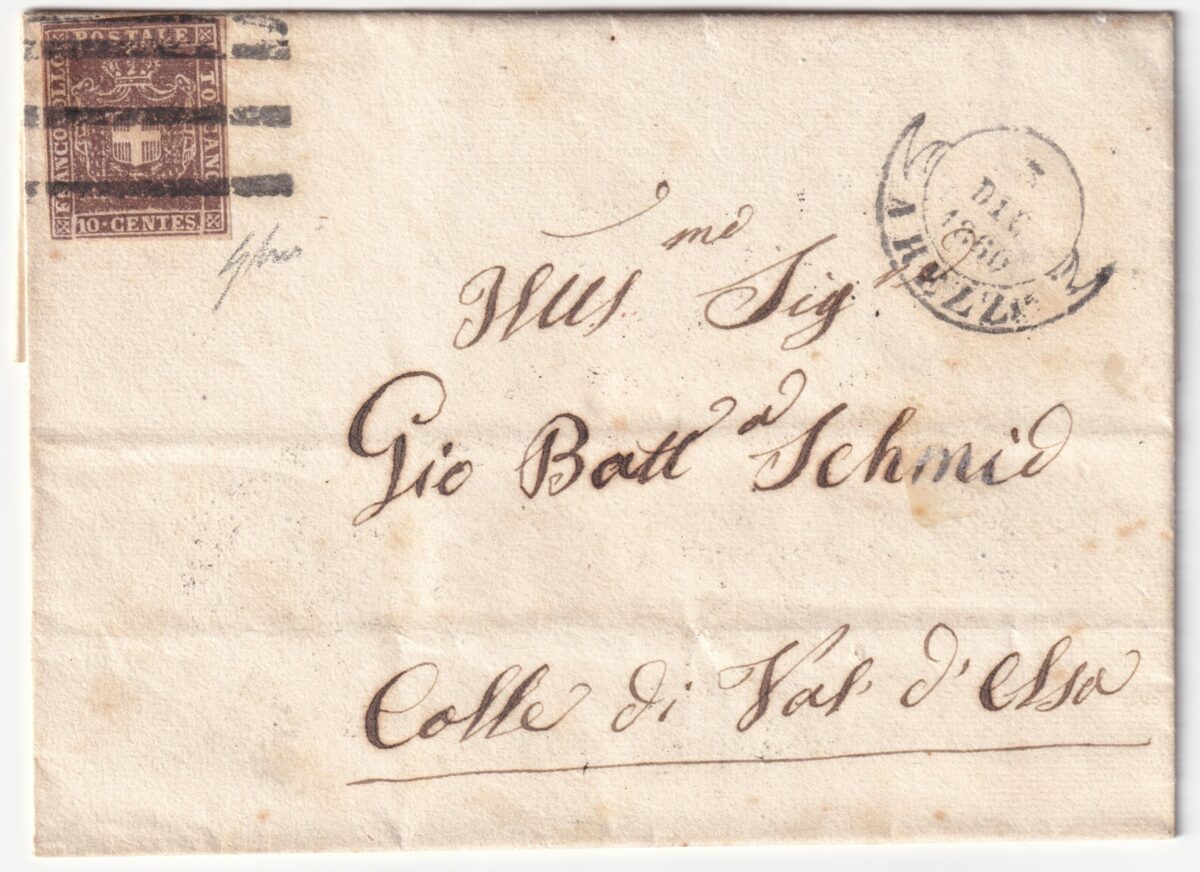 FRANCOBOLLO POSTALE TOSCANO
10-CENTES
DIC
1860
AREZZO
Ill.mo Sig.
Gio Batt.a Schmid
Colle di Val d'Elsa